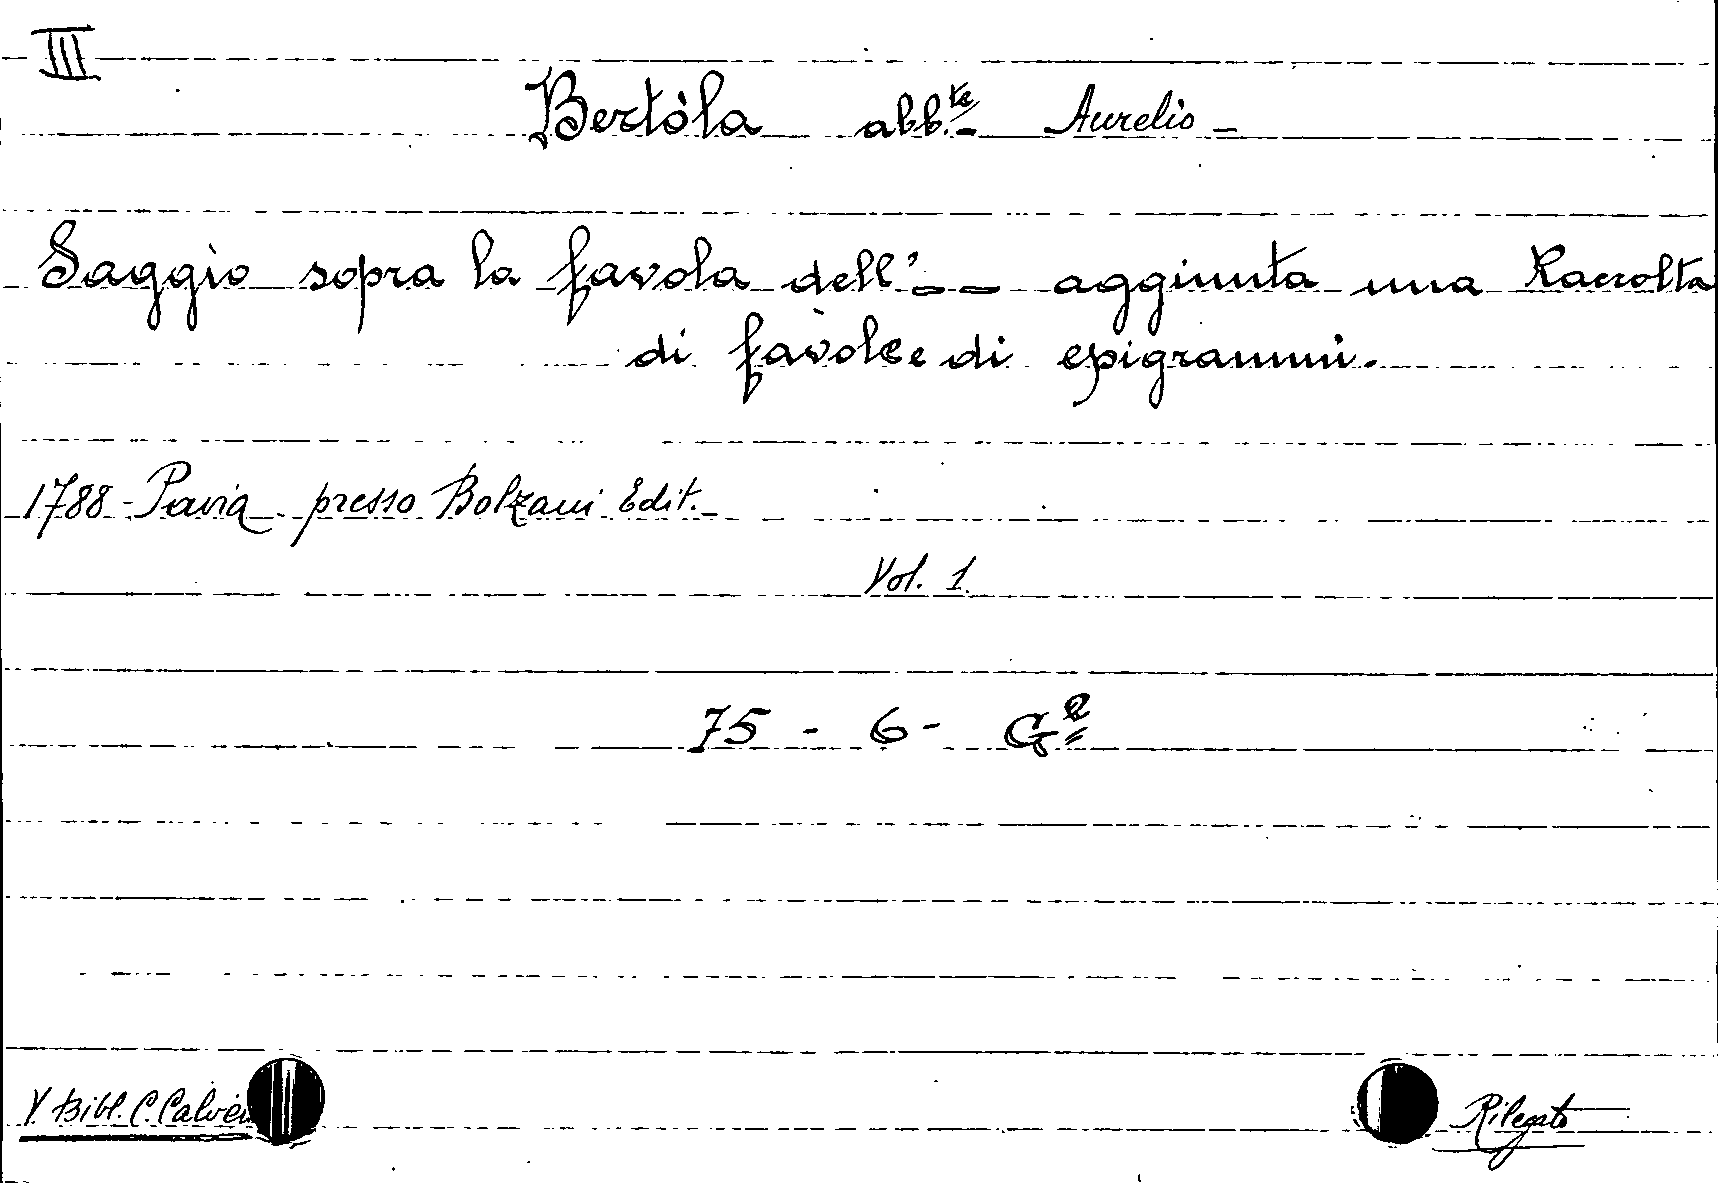 III
Bertòla abb.te Aurelio -
Saggio sopra la favola dell' = = aggiunta una Raccolta
di favole e di epigrammi.
1788 - Pavia - presso Bolzani Edit. -
Vol. 1.
75 - 6 - G
V. Bibl. C.
Rilegato